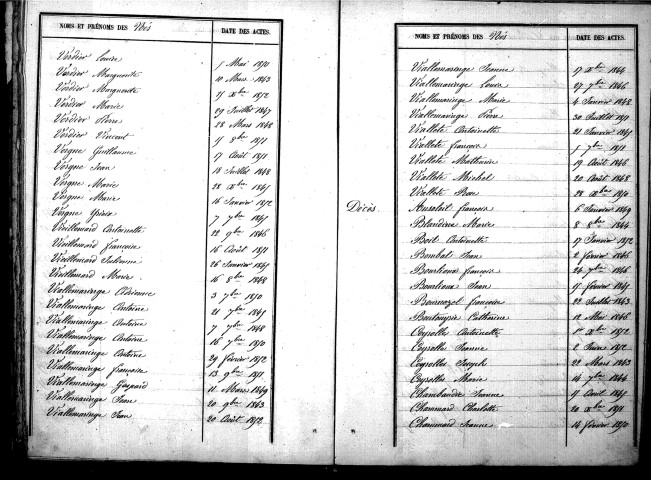 NOMS ET PRÉNOMS DES Nés DATE DES ACTES.
Verdier Louise 1 Mai 1851
Verdier Marguerite 10 Mars 1843
Verdier Marguerite 21 Xbre 1852
Verdier Marie 29 Juillet 1847
Verdier Pierre 28 Mars 1848
Verdier Vincent 9 8bre 1851
Vergne Guillaume 17 Août 1851
Vergne Jean 18 Juillet 1848
Vergne Marie 28 Xbre 1845
Vergne Marie 16 Janvier 1852
Vergne 7 7bre 1845
Vieillemard Antoinette 22 9bre 1846
Vieillemard françoise 16 Août 1851
Vieillemard Julienne 26 Janvier 1845
Vieillemard Marie 16 8bre 1848
Viallemaringe Adrienne 3 7bre 1850
Viallemaringe Antoine 21 7bre 1845
Viallemaringe Antoine 7 7bre 1848
Viallemaringe Antoine 16 7bre 1850
Viallemaringe Antoine 29 février 1852
Viallemaringe françoise 13 9bre 1851
Viallemaringe Gaspard 11 Mars 1849
Viallemaringe Jean 20 9bre 1843
Viallemaringe Jean 20 Août 1852
NOMS ET PRÉNOMS DES Nés DATE DES ACTES.
Viallemaringe Jeanne 17 Xbre 1844
Viallemaringe Louise 27 7bre 1846
Viallemaringe Marie 4 Janvier 1848
Viallemaringe Pierre 30 Juillet 1851
Viallote Antoinette 21 Janvier 1845
Viallote françois 1 7bre 1851
Viallote Mathurine 19 Août 1846
Viallote Michel 20 Août 1848
Viallote Rose 28 Xbre 1850
Décès.
Ansoleil françoise 6 Janvier 1849
Blandine Marie 8 8bre 1844
Boit Antoinette 17 Janvier 1852
Bombal Jean 2 février 1846
françoise 24 7bre 1846
Jean 19 février 1845
Bournazel françoise 22 Juillet 1843
Catherine 12 Mai 1846
Ceyrolle Antoinette 1er Xbre 1852
Ceyrolles Jeanne 2 1852
Ceyrolles Joseph 22 Mars 1843
Ceyrolles Marie 14 7bre 1844
Chambaudie Jeanne 9 Août 1845
Chammard Charlotte 20 Xbre 1851
Chammard Jeanne 14 février 1850